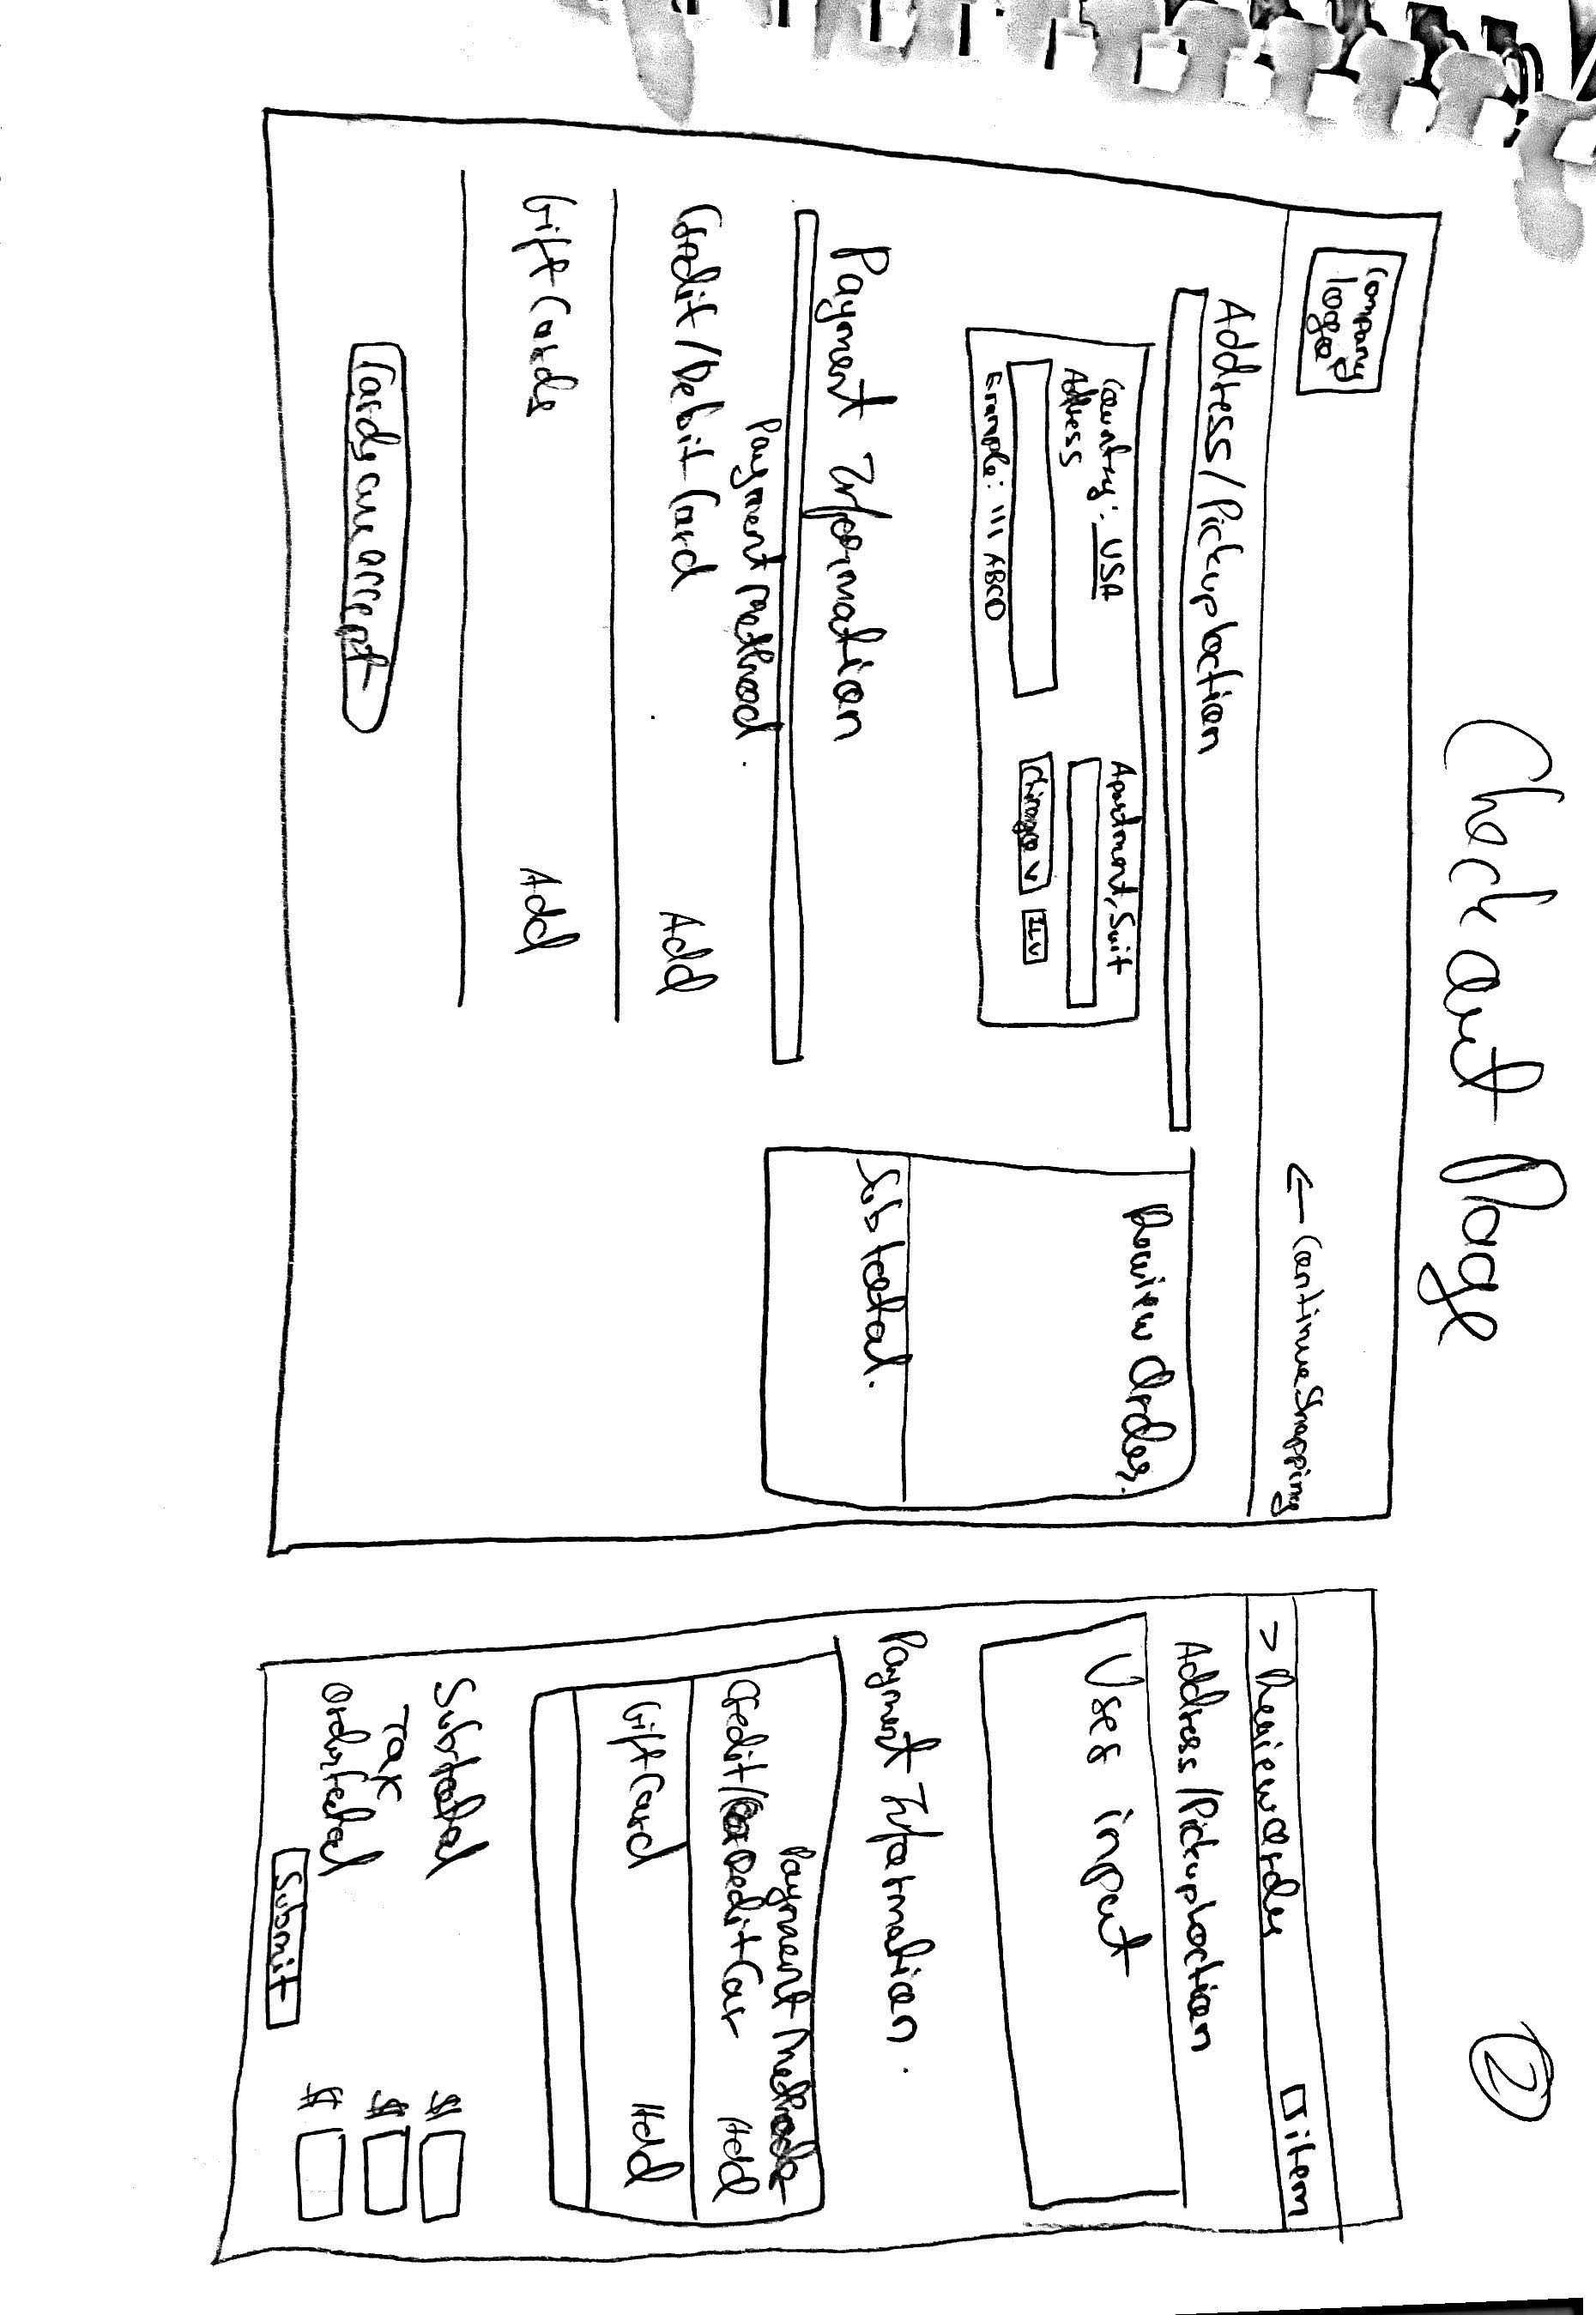 Check out Page
2
Company
logo
← Continue Shopping
Address/Pickup loction
Country: USA
Address
Example: 111 ABCD
Apartment, Suit
Chicago v
IL v
Review Order.
Subtotal.
Payment Information
Payment Method.
Credit/Debit Card Add
Gift Cards Add
Cards we accept
> Review Order
item
Address/Pickup loction
User input
Payment Information.
Payment Method
Credit/ Debit Car Add
Gift Card Add
Subtotal $
Tax $
Order total $
Submit